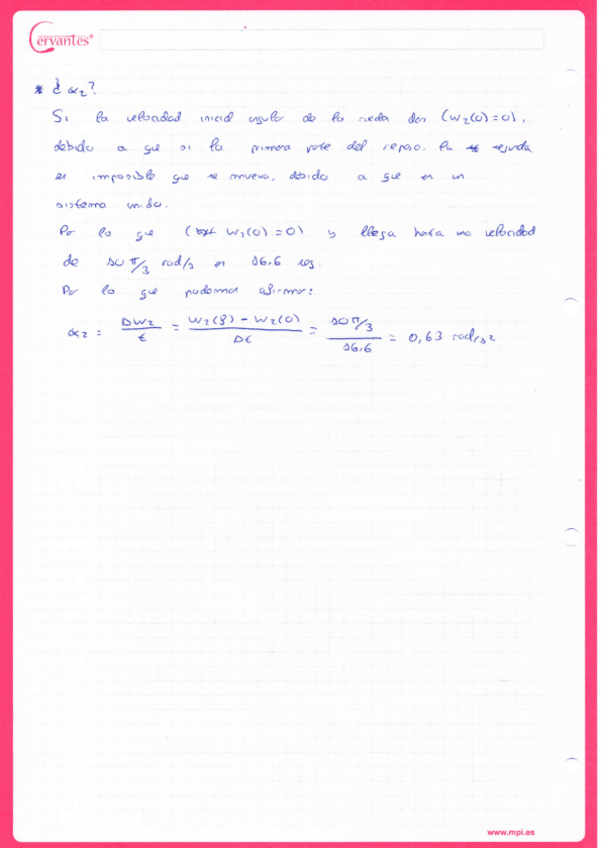 Cervantes®
* ¿α₂?
Si la velocidad inicial angular de la rueda dos (W₂(0)=0),
debido a que si la primera parte del reposo, la segunda
es imposible que se mueva, debido a que es un
sistema unido.
Por lo que ( W₂(0)=0) y llega hasta una velocidad
de 10π/3 rad/s en 16.6 seg.
Por lo que podemos afirmar:
α₂ = ΔW₂/t = W₂(8) - W₂(0)/Δt = 10π/3/16.6 = 0,63 rad/s²
www.mpi.es